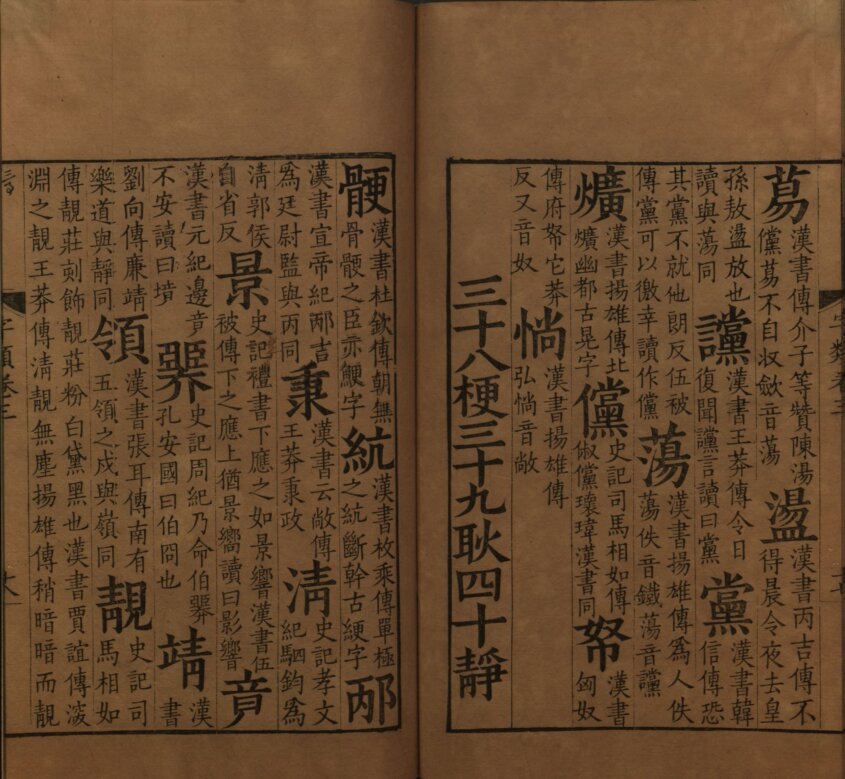 漢書傳介子等贊陳湯儻不自収斂音蕩盪漢書丙吉傳不得晨令夜去皇
孫敖盪放也讀與蕩同讜漢書王莽傳令日復聞讜言讀曰黨黨漢書韓信傳恐
其黨不就他朗反伍被傳黨可以徼幸讀作儻蕩漢書揚雄傳為人佚蕩佚音鐵蕩音讜
爌漢書揚雄傳北爌幽都古晃字儻史記司馬相如傳俶儻瓌瑋漢書同帑漢書匈奴
傳府帑它莽反又音奴惝漢書揚雄傳弘惝音敞
三十八梗三十九耿四十靜
骾漢書杜欽傳朝無骨骾之臣亦鯁字統漢書枚乘傳單極之統斷幹古綆字邴
漢書宣帝紀邴吉為廷尉監與丙同秉漢書云敞傳王莽秉政清史記孝文紀駟鈞為
清郭侯自省反景史記禮書下應之如景響漢書伍被傳下之應上猶景嚮讀曰影響
漢書元紀邊竟不安讀曰境史記周紀乃命伯臩孔安國曰伯冏也靖漢書
劉向傳廉靖樂道與靜同領漢書張耳傳南有五領之戍與嶺同靚史記司馬相如
傳靚莊刻飾靚莊粉白黛黑也漢書賈誼傳澹淵之靚王莽傳清靚無塵揚雄傳稍暗暗而靚
字類卷三